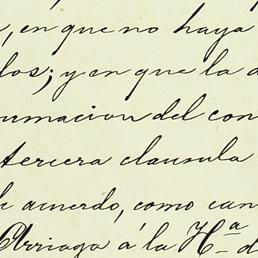 , en que no haya
los; y en que la
umacion del con
tercera clausula
de acuerdo, como can
Arriaga á la Hª d